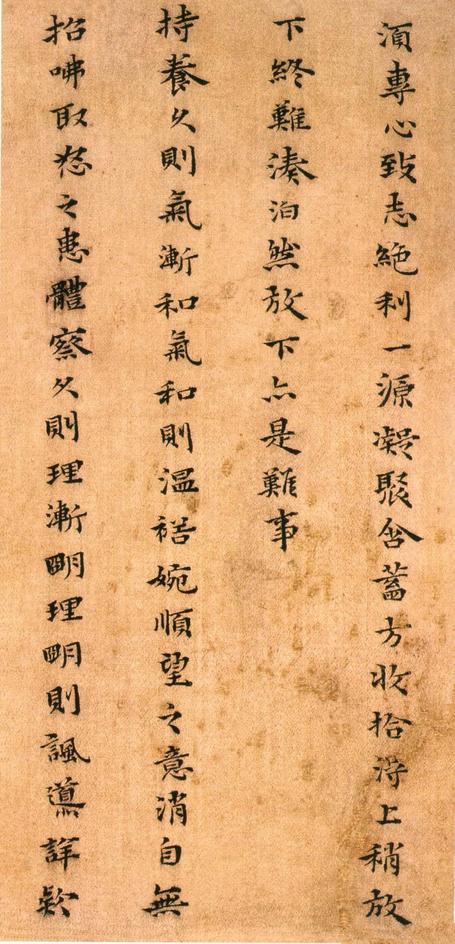 須專心致志絕利一源凝聚含蓄方收拾得上稍放
下終難湊泊然放下亦是難事
持養久則氣漸和氣和則溫裕婉順望之意消自無
招咈取怒之患體察久則理漸明理明則諷導詳款